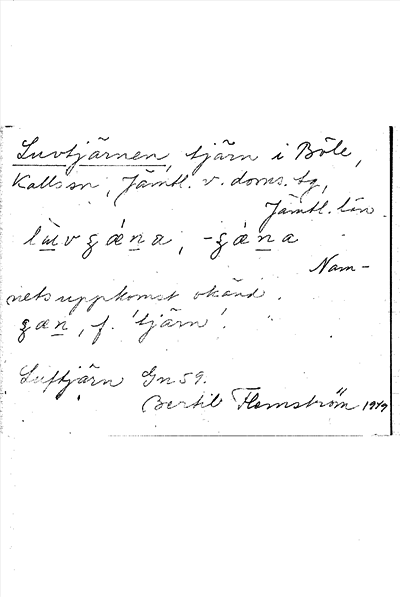 Luvtjärnen, tjärn i Böle,
Kallssn, Jämtl. v. doms. tg,
Jämtl. län
Nam-
nets uppkomst okänd.
f. 'tjärn'.
Luftjärn Gn 59.
Bertil Flemström 1919